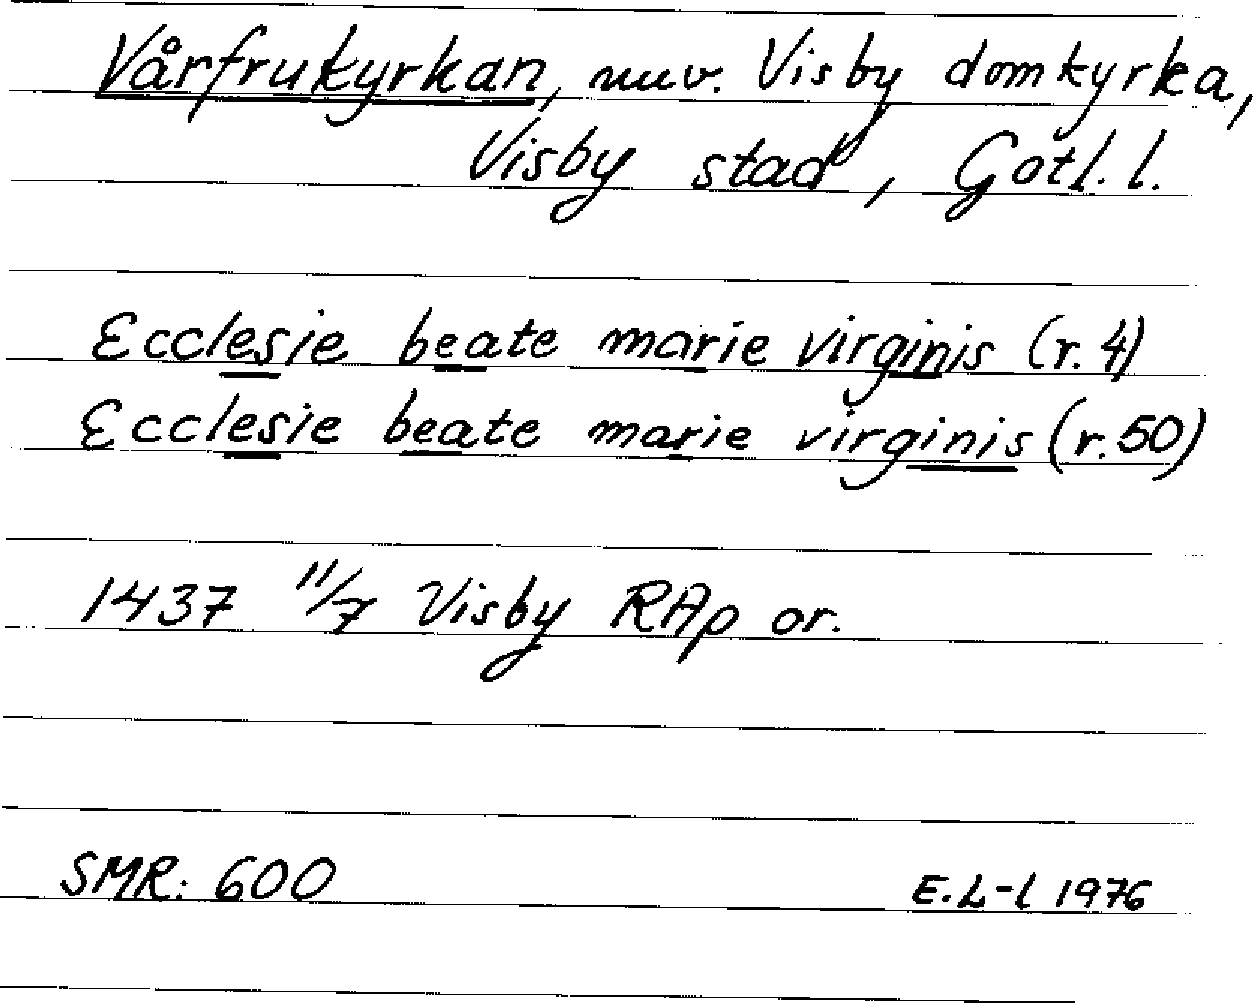 Vårfrukyrkan, nuv. Visby domkyrka,
Visby stad, Gotl. l.
Ecclesie beate marie virginis (r. 4)
Ecclesie beate marie virginis (r. 50)
1437 11/7 Visby RAp or.
SMR: 600 E.L-l 1976